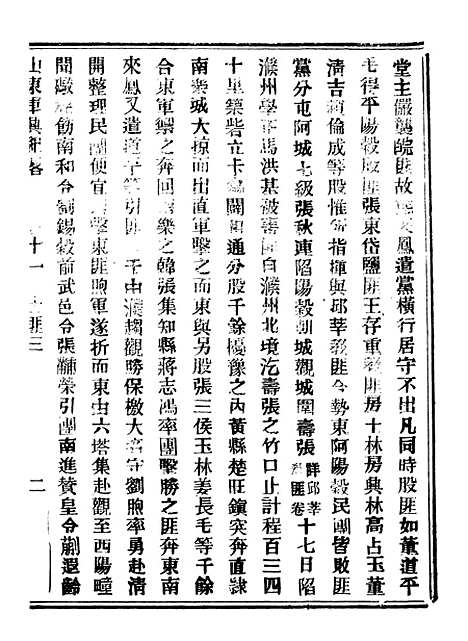 堂主嚴襲皖匪故來鳳遣黨橫行居守不出凡同時股匪如董道平
毛得平陽穀股匪張東岱鹽匪王存重敎匪房士林房興林高占玉董
清吉賴倫成等股惟所指揮與邱莘敎匪合勢東阿陽穀民團皆敗匪
黨分屯阿城七級張秋連陷陽穀朝城觀城圍壽張詳邱莘敎匪卷十七日陷
濮州學 馬洪基被害回自濮州北境迄壽張之竹口止計程百三四
十里築砦立卡 閒 通分股千餘擾豫之內黃縣楚旺鎭突奔直隷
南樂城大掠而出直軍擊之而東與另股張三侯玉林姜長毛等千餘
合東軍禦之奔回南樂之韓張集知縣蔣志鴻率團擊勝之匪奔東南
來鳳又遣道平等引匪 千由濮趨觀勝保檄大名守劉煦率勇赴清
開整理民團便宜 擊東匪煦軍遂折而東由六塔集赴觀至西陽疃
聞敵 飭南和令劉錫穀前武邑令張黼榮引團南進贊皇令蒯遐齡
山東軍興紀畧 十一 匪三 二